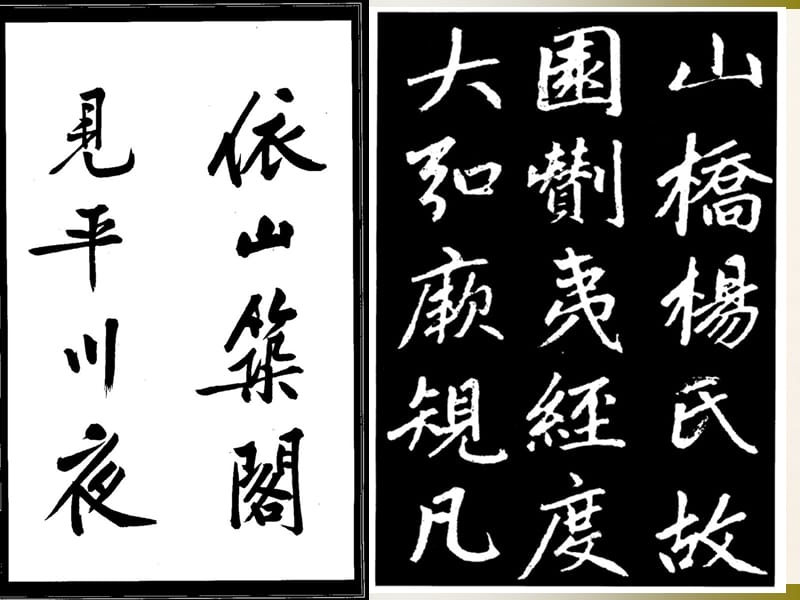 依山築閣
見平川夜
山橋楊氏故
園劗夷經度
大弘厥規凡